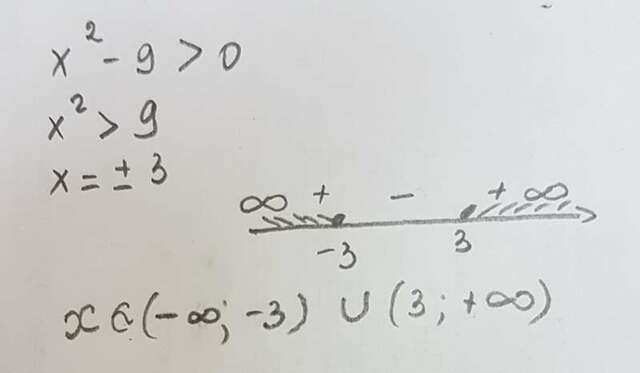 x² - 9 > 0
x² > 9
x = ± 3
∞ + - + ∞
-3 3
x ∈ (-∞; -3) ∪ (3; +∞)